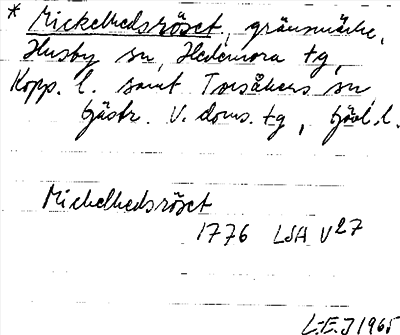 * Mickelhedsröset, gränsmärke,
Husby sn, Hedemora tg,
Kopp. l. samt Torsåkers sn,
Gästr. V. doms. tg, Gävl. l.
Mickelhedsröset
1776 LSA V27
L-E.J 1965